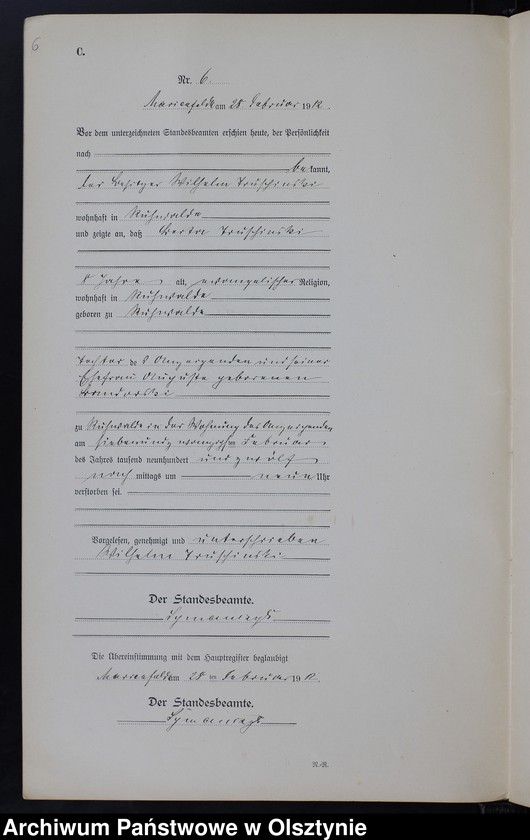 6
C.
Nr. 6.
Marienfelde am 28 Februar 1912.
Vor dem unterzeichneten Standesbeamten erschien heute, der Persönlichkeit
nach
bekannt,
der Besitzer Wilhelm Truschinski
wohnhaft in Ruhwalde
und zeigte an, daß Berta Truschinski
8 Jahre alt, evangelischer Religion,
wohnhaft in Ruhwalde
geboren zu Ruhwalde
Tochter des Anzeigenden und seiner
Ehefrau Auguste geborenen
zu Ruhwalde in der Wohnung des Anzeigenden
am siebenundzwanzigsten Februar
des Jahres tausend neunhundert und zwölf
nach mittags um neun Uhr
verstorben sei.
Vorgelesen, genehmigt und unterschrieben
Wilhelm Truschinski
Der Standesbeamte.
Die Übereinstimmung mit dem Hauptregister beglaubigt
Marienfelde am 28 ten Februar 1912.
Der Standesbeamte.
N.-R.
Archiwum Państwowe w Olsztynie